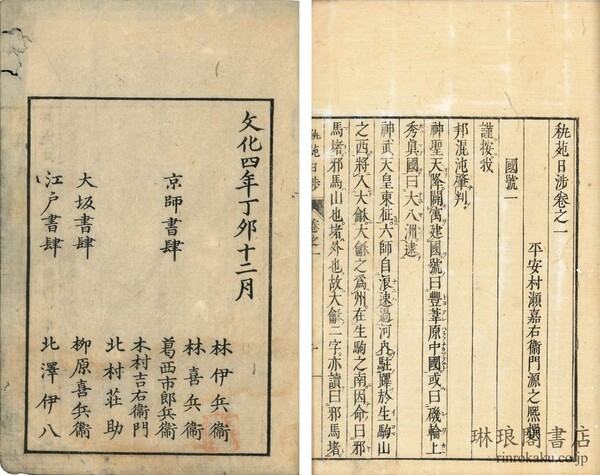 秇苑日渉卷之一
平安村瀬嘉右衞門源之熙撰
國號一
謹按我
邦混沌肇判
神聖天降開寓建國號曰豐葦原中國或曰磯輪上
秀眞國曰大八洲逮
神武天皇東征六師自浪速過河內駐蹕於生駒山
之西將入大龢大龢之爲州在生駒之南因命曰邪
馬堵邪馬山也堵外也故大龢二字亦讀曰邪馬堵
秇苑日渉
卷之一
文化四年丁卯十二月
京師書肆
林伊兵衞
林喜兵衞
葛西市郎兵衞
木村吉右衞門
北村莊助
大坂書肆
柳原喜兵衞
江戸書肆
北澤伊八
琳琅閣書店
rinrokaku.co.jp